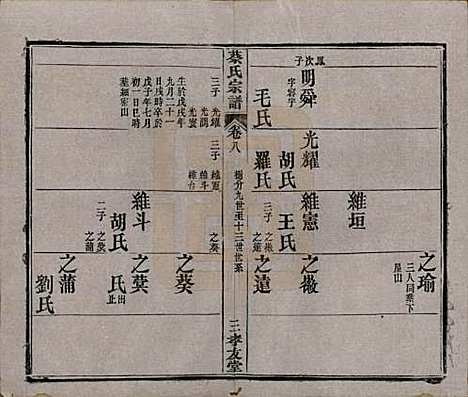 鳳次子
明舜
字容宇
毛氏
三子
光耀
光潤
光寰
生於戊戌年
九月二十一
日戌時卒於
戊子年七月
初一日巳時
墓細家山
光耀
胡氏
羅氏
三子
維憲
維斗
維台
維垣
維憲
王氏
三子
之徽
之遠
之葵
維斗
胡氏
二子
之蓂
之蒲
之瑜
三人同葬下
屋山
之徽
之遠
之葵
之蓂
氏
出
止
之蒲
劉氏
蔡氏宗譜
卷八
楊分九世至十三世世系
三
孝友堂